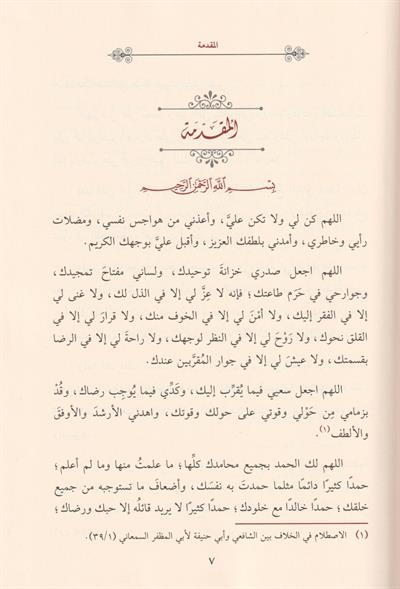 المقدمة
المقَدّمَة
بِسْمِ اللَّهِ الرَّحْمَنِ الرَّحِيمِ
اللهم كن لي ولا تكن عليَّ، وأعذني من هواجس نفسي، ومضلات
رأيي وخاطري، وأمدني بلطفك العزيز، وأقبل عليَّ بوجهك الكريم.
اللهم اجعل صدري خزانةَ توحيدك، ولساني مفتاحَ تمجيدك،
وجوارحي في حَرَم طاعتك؛ فإنه لا عِزَّ لي إلا في الذل لك، ولا غنى لي
إلا في الفقر إليك، ولا أمْنَ لي إلا في الخوف منك، ولا قرارَ لي إلا في
القلق نحوك، ولا رَوْحَ لي إلا في النظر لوجهك، ولا راحةَ لي إلا في الرضا
بقسمتك، ولا عيشَ لي إلا في جوار المُقرَّبين عندك.
اللهم اجعل سعيي فيما يُقرِّب إليك، وكَدِّي فيما يُوجِب رضاك، وقُدْ
بزمامي مِن حَوْلي وقوتي على حولك وقوتك، واهدني الأرشدَ والأوفقَ
والألطفَ(١).
اللهم لك الحمد بجميع محامدك كلِّها؛ ما علمتُ منها وما لم أعلم؛
حمدًا كثيرًا دائمًا مثلما حمدتَ به نفسَك، وأضعافَ ما تستوجبه من جميع
خلقك؛ حمدًا خالدًا مع خلودك؛ حمدًا كثيرًا لا يريد قائلُه إلا حبك ورضاك؛
(١) الاصطلام في الخلاف بين الشافعي وأبي حنيفة لأبي المظفر السمعاني (٣٩/١).
٧